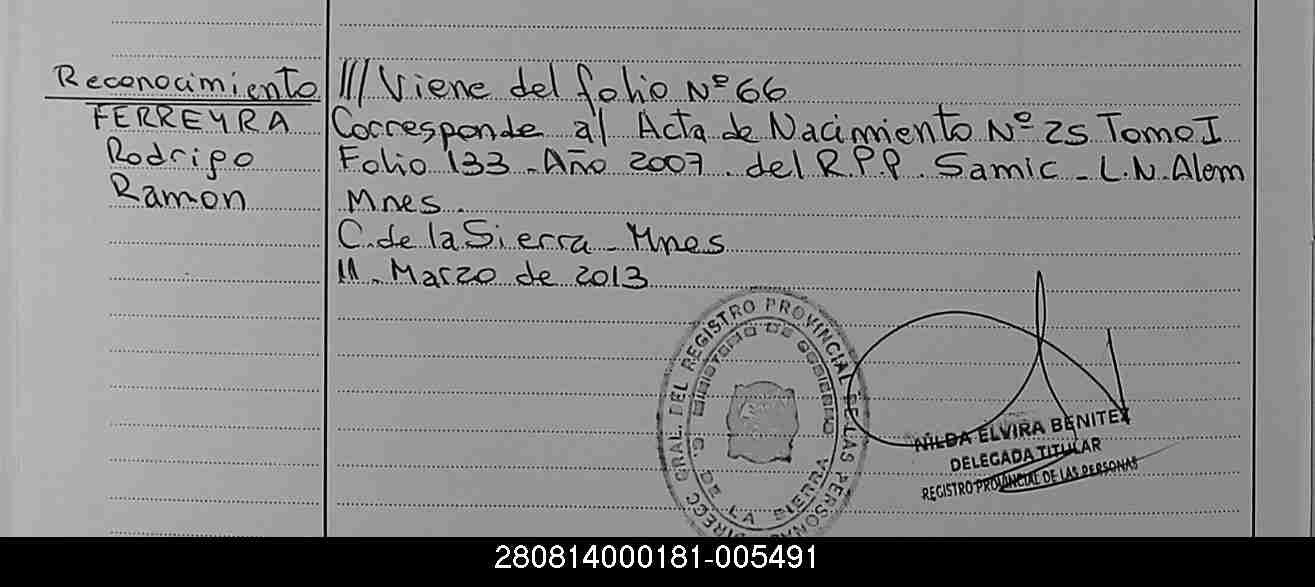 Reconocimiento
FERREYRA
Rodrigo
Ramon
/// Viene del folio Nº 66
Corresponde al Acta de Nacimiento Nº 25 Tomo I
Folio 133 - Año 2007 . del R.P.P. Samic - L.N. Alem
Mnes .
C. de la Sierra - Mnes
11 - Marzo de 2013
DIRECC GRAL. DEL REGISTRO PROVINCIAL DE LAS PERSONAS
MINISTERIO DE GOBIERNO
DE LA SIERRA
NILDA ELVIRA BENITEZ
DELEGADA TITULAR
REGISTRO PROVINCIAL DE LAS PERSONAS
280814000181-005491